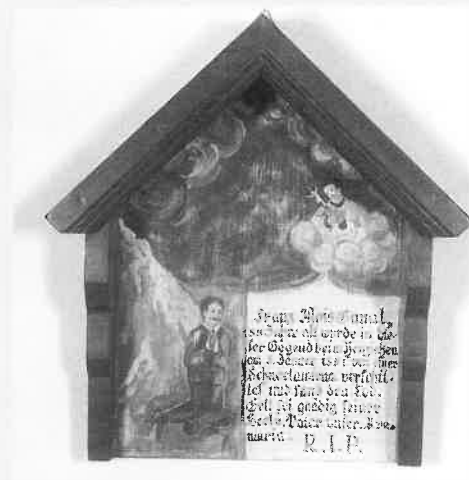 Franz
Jahre alt wurde in die-
ser Gegend beim
am Jänner von einer
Schneelawine verschüt-
tet und fand den Tod.
Gott sei gnädig seiner
Seele. Vater unser. Ave
maria.
R.I.P.